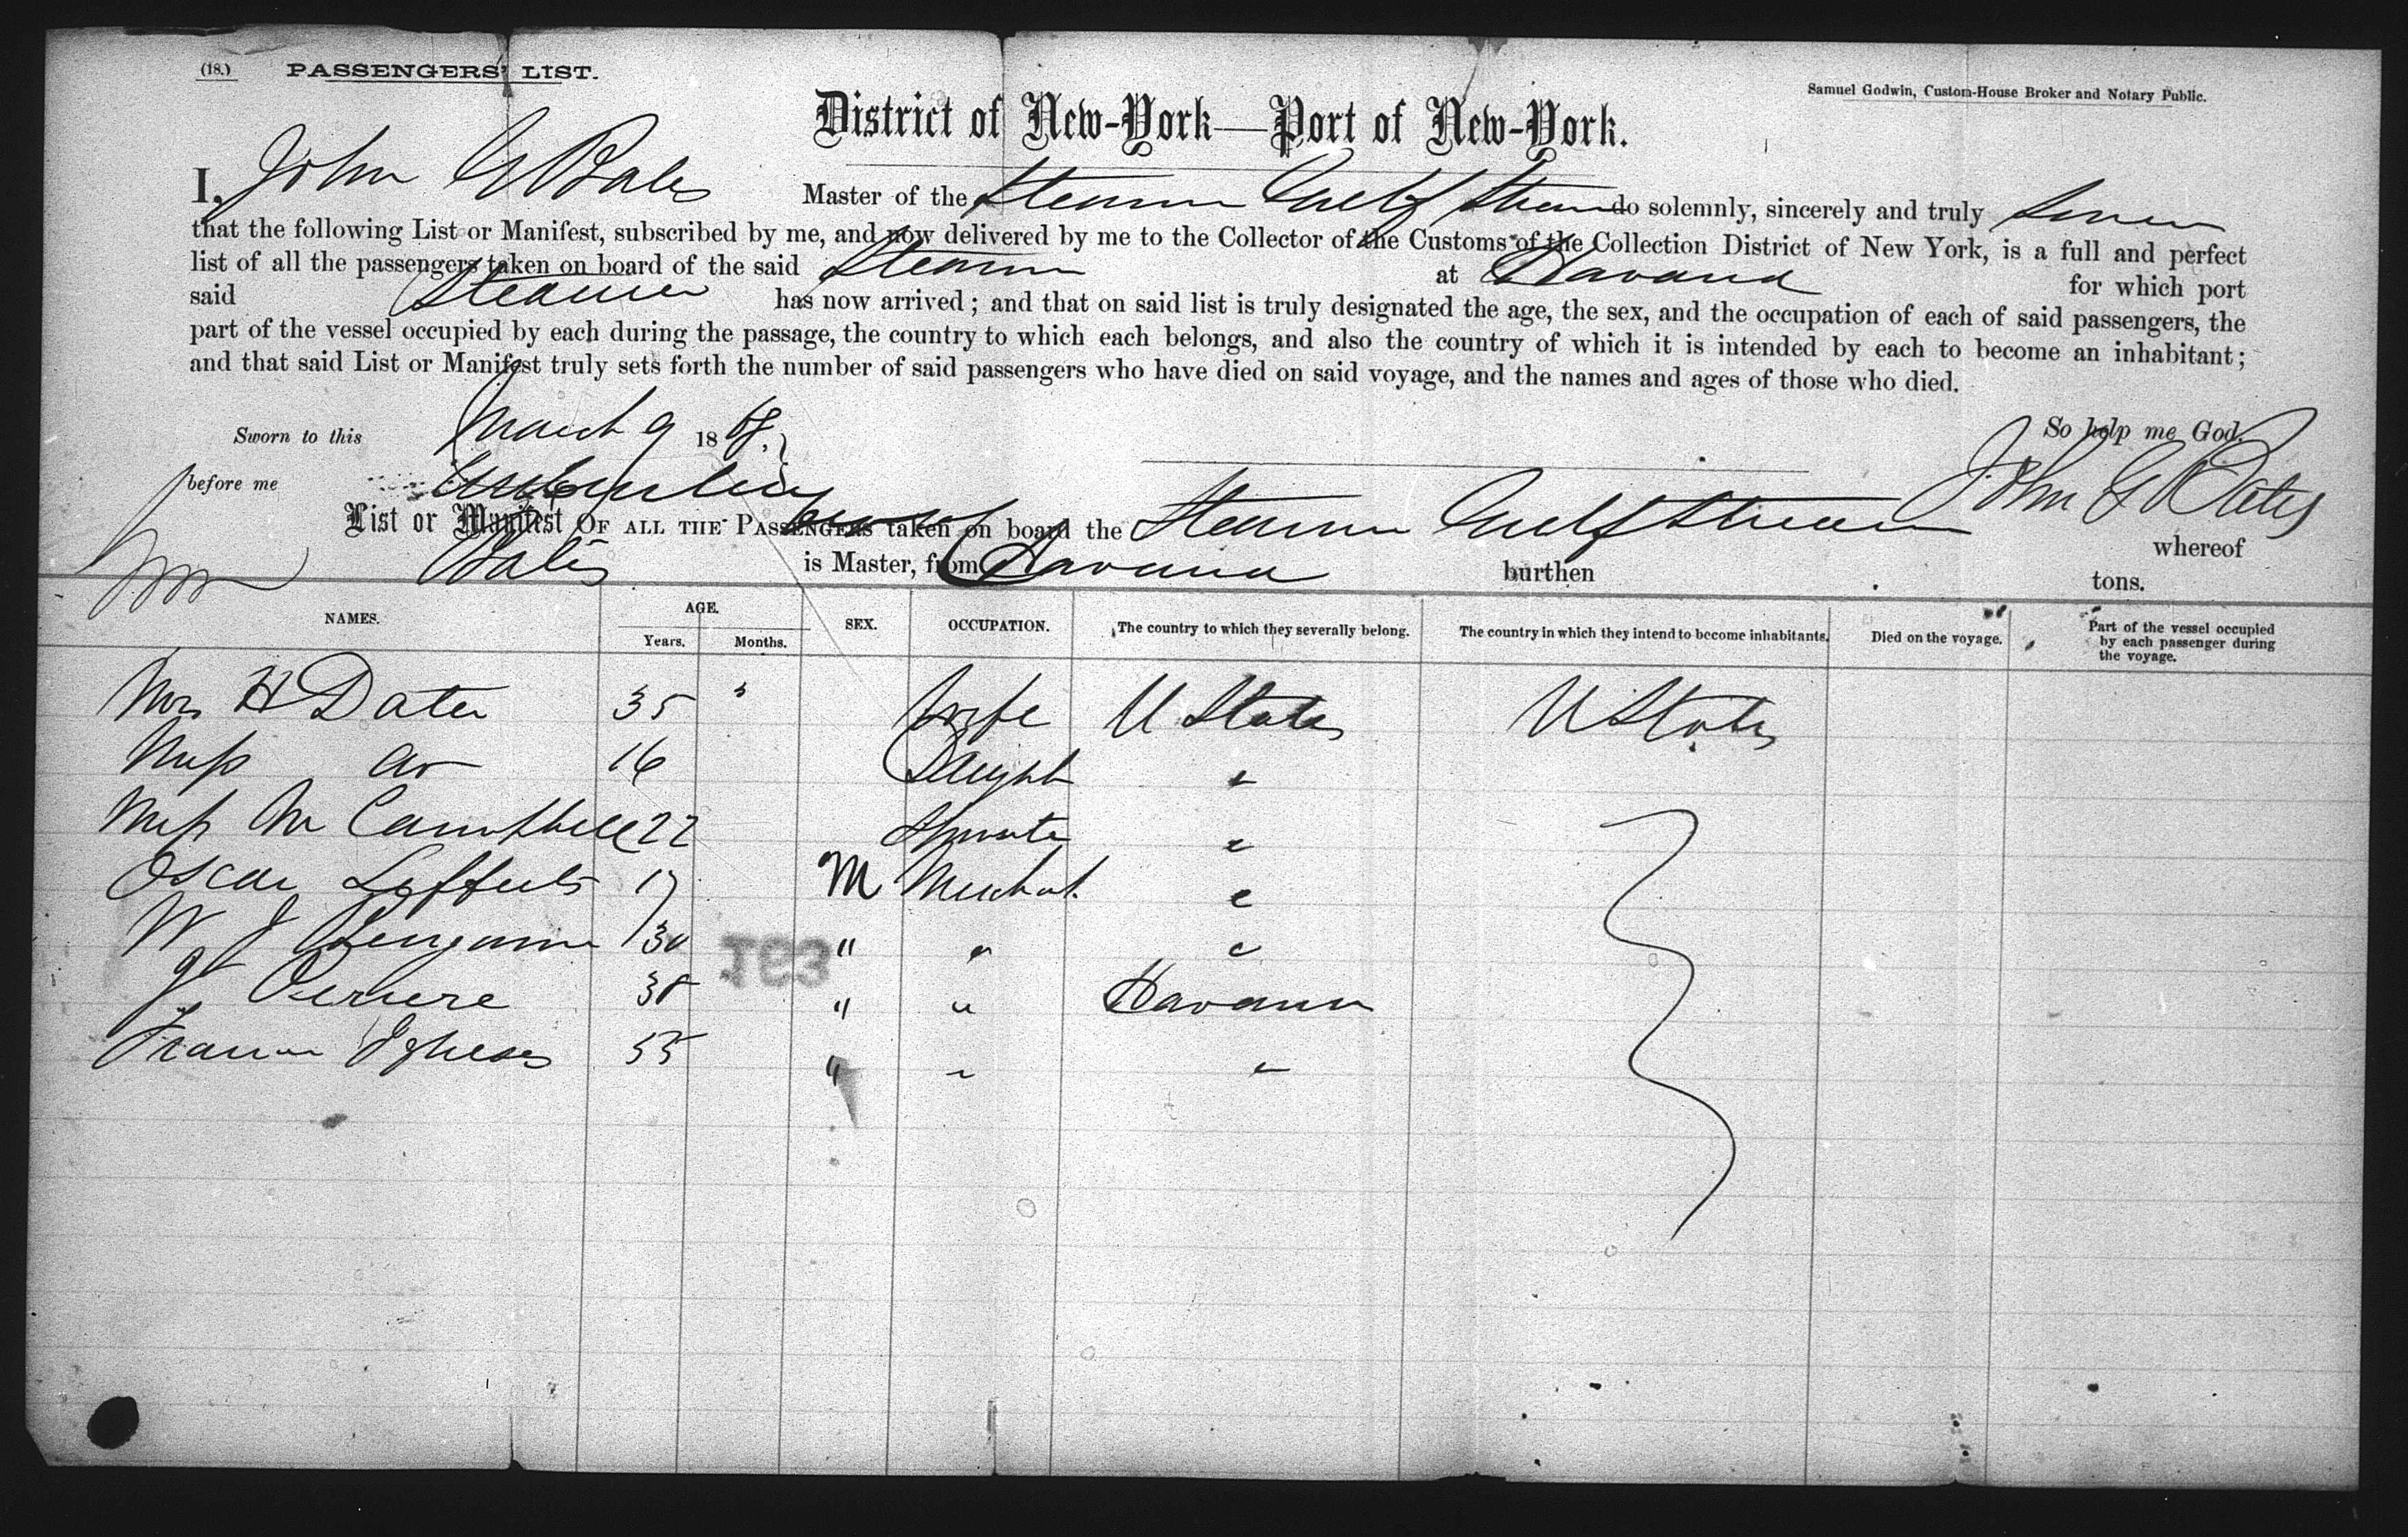 (18.) PASSENGERS' LIST.
Samuel Godwin, Custom-House Broker and Notary Public.
District of New-York—Port of New-York.
I, John G Bates Master of the Steamer Gulf Stream do solemnly, sincerely and truly swear
that the following List or Manifest, subscribed by me, and now delivered by me to the Collector of the Customs of the Collection District of New York, is a full and perfect
list of all the passengers taken on board of the said Steamer at Havana for which port
said Steamer has now arrived; and that on said list is truly designated the age, the sex, and the occupation of each of said passengers, the
part of the vessel occupied by each during the passage, the country to which each belongs, and also the country of which it is intended by each to become an inhabitant;
and that said List or Manifest truly sets forth the number of said passengers who have died on said voyage, and the names and ages of those who died.
Sworn to this March 9 1868. So help me God.
before me John G Bates
List or Manifest OF ALL THE PASSENGERS taken on board the Steamer Gulf Stream whereof
Bates is Master, from Havana burthen tons.
NAMES. AGE. Years. Months. SEX. OCCUPATION. The country to which they severally belong. The country in which they intend to become inhabitants. Died on the voyage. Part of the vessel occupied by each passenger during the voyage.
Mrs H Dater 35 Wife U States U States
Miss do 16 Daught "
Miss M Campbell 22 "
Oscar Lefferts 17 M Merchat. "
W J Benjamin 30 " " "
J Perriere 38 " " Havana
55 " " "
193